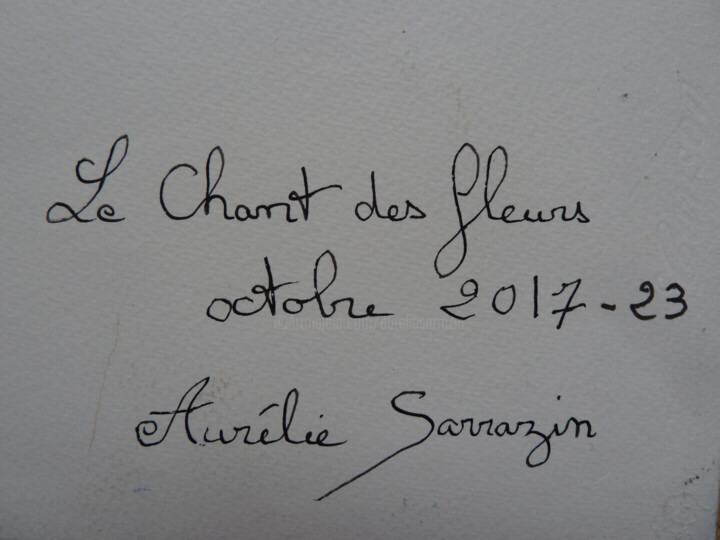 Le Chant des fleurs
octobre 2017-23
Aurélie Sarrazin